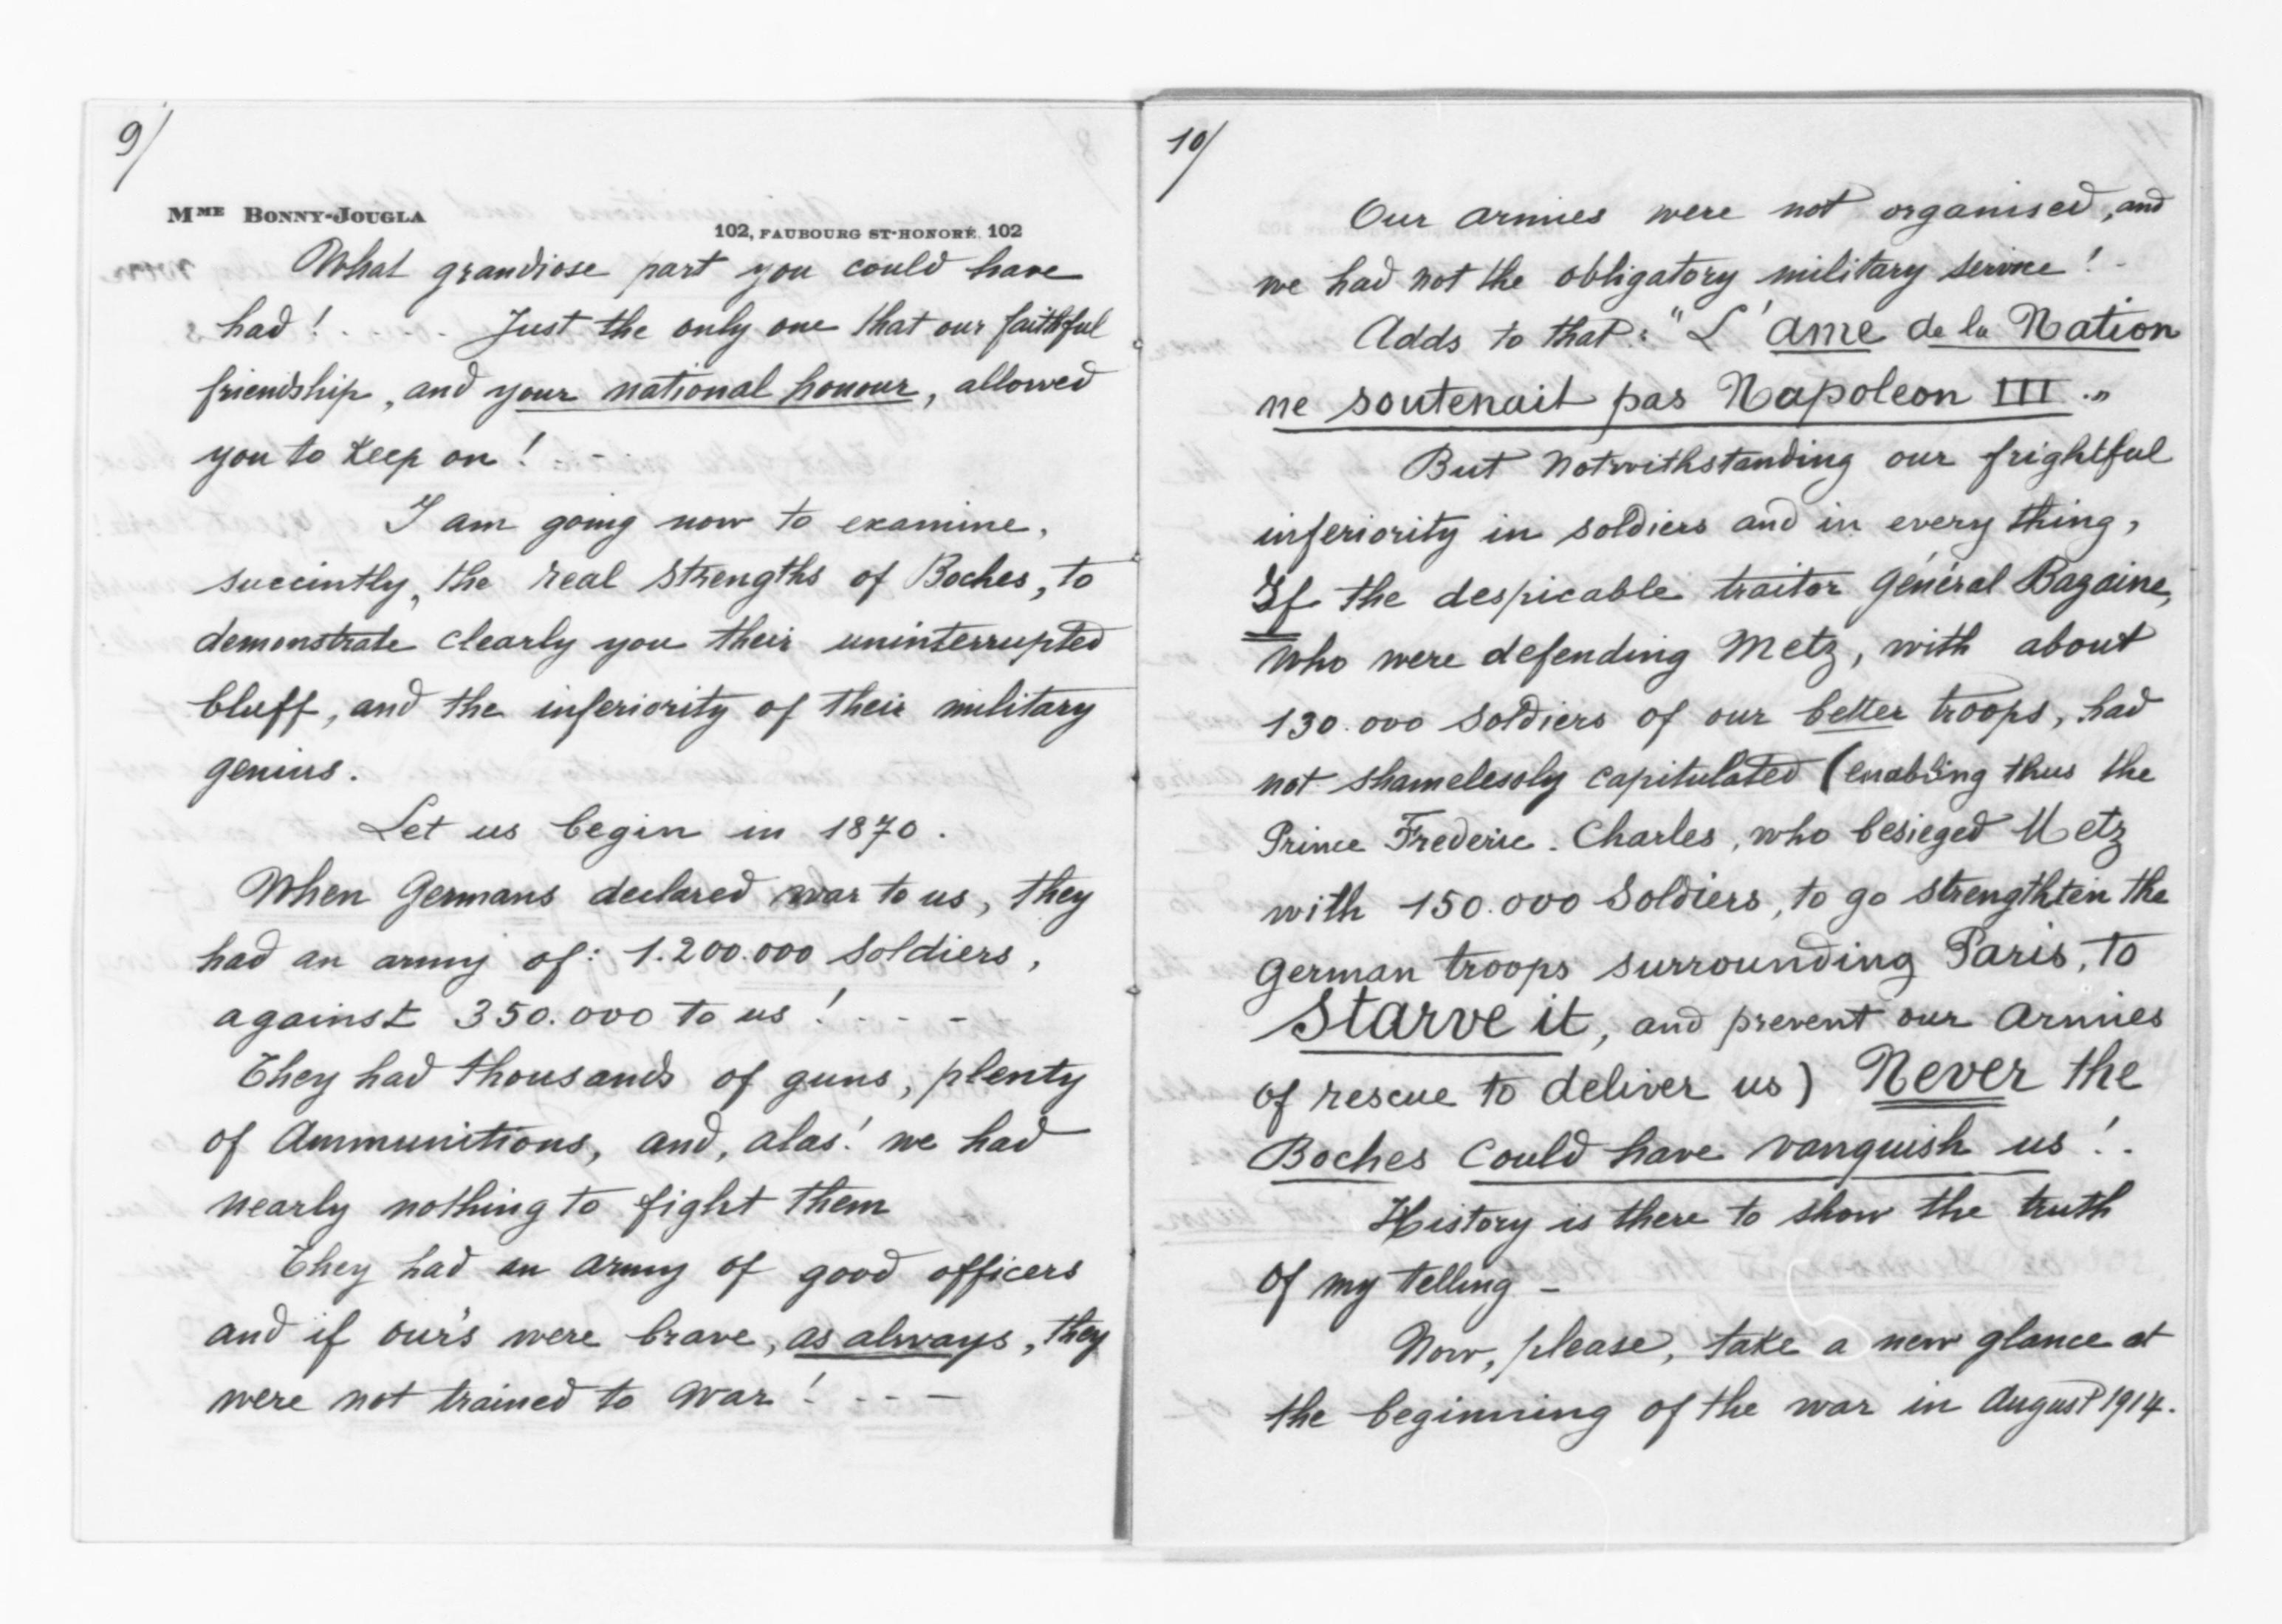 9/
Mme Bonny-Jougla
102, Faubourg St-Honoré, 102
What grandiose part you could have
had! . - - . Just the only one that our faithful
friendship, and your national honour, allowed
you to Keep on! - -
I am going now to examine,
succintly, the real strengths of Boches, to
demonstrate clearly you their uninterrupted
bluff, and the inferiority of their military
genius.
Let us begin in 1870.
When Germans declared war to us, they
had an army of: 1.200.000 soldiers,
against 350.000 to us! - - -
They had thousands of guns, plenty
of Ammunitions, and, alas! we had
nearly nothing to fight them
They had an army of good officers
and if our's were brave, as always, they
were not trained to war! - - -
10/
Our armies were not organised, and
we had not the obligatory military service! -
Adds to that: "L'ame de la Nation
ne soutenait pas Napoleon III."
But notwithstanding our frightful
inferiority in soldiers and in every thing,
If the despicable traitor Général Bazaine,
who were defending Metz, with about
130.000 soldiers of our better troops, had
not shamelessly capitulated (enabling thus the
Prince Frederic. Charles, who besieged Metz
with 150.000 soldiers, to go strengthtein the
German troops surrounding Paris, to
Starve it, and prevent our Armies
of rescue to deliver us) Never the
Boches could have vanquish us! .
History is there to show the truth
of my telling -
Now, please, take a new glance at
the beginning of the war in August 1914.